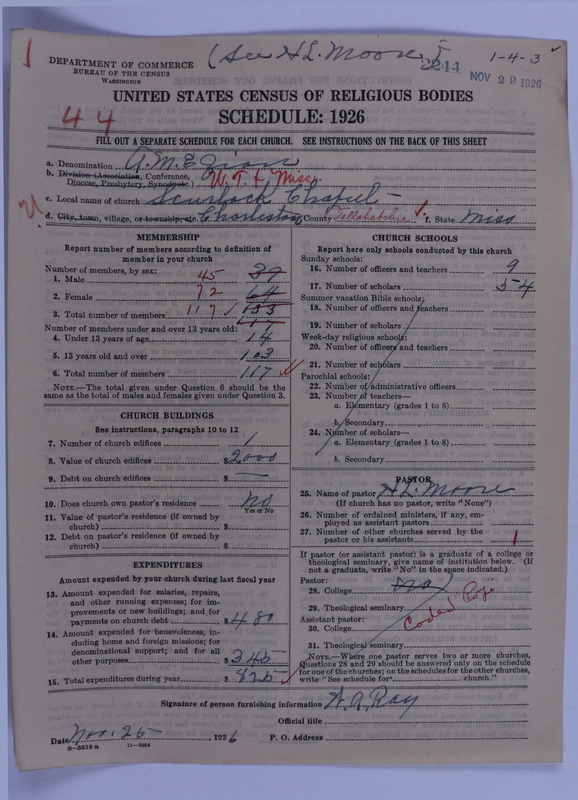 (See H L. Moore)
1-4-3
DEPARTMENT OF COMMERCE
BUREAU OF THE CENSUS
WASHINGTON
2244
NOV 29 1926
UNITED STATES CENSUS OF RELIGIOUS BODIES
SCHEDULE: 1926
44
FILL OUT A SEPARATE SCHEDULE FOR EACH CHURCH. SEE INSTRUCTIONS ON THE BACK OF THIS SHEET
a. Denomination A. M. E. Zion
b. Division (Association, Conference, Diocese, Presbytery, Synod, etc.) W. T. & Miss.
c. Local name of church Scurlock Chapel
d. City, town, village, or township, etc. Charleston County Tallahatchie f. State Miss
MEMBERSHIP
Report number of members according to definition of
member in your church
Number of members, by sex:
1. Male 45 39
2. Female 72 64
3. Total number of members 117 103
Number of members under and over 13 years old: 117
4. Under 13 years of age 14
5. 13 years old and over 103
6. Total number of members 117
NOTE.—The total given under Question 6 should be the
same as the total of males and females given under Question 3.
CHURCH BUILDINGS
See instructions, paragraphs 10 to 12
7. Number of church edifices 1
8. Value of church edifices $2000
9. Debt on church edifices $ —
10. Does church own pastor's residence No
Yes or No
11. Value of pastor's residence (if owned by
church) $
12. Debt on pastor's residence (if owned by
church) $
EXPENDITURES
Amount expended by your church during last fiscal year
13. Amount expended for salaries, repairs,
and other running expenses; for im-
provements or new buildings; and for
payments on church debt $ 480
14. Amount expended for benevolences, in-
cluding home and foreign missions; for
denominational support; and for all
other purposes $ 345
15. Total expenditures during year $ 825
CHURCH SCHOOLS
Report here only schools conducted by this church
Sunday schools:
16. Number of officers and teachers 9
17. Number of scholars 54
Summer vacation Bible schools:
18. Number of officers and teachers
19. Number of scholars
Week-day religious schools:
20. Number of officers and teachers
21. Number of scholars
Parochial schools:
22. Number of administrative officers
23. Number of teachers—
a. Elementary (grades 1 to 8)
b. Secondary
24. Number of scholars—
a. Elementary (grades 1 to 8)
b. Secondary
PASTOR
25. Name of pastor H L. Moore
(If church has no pastor, write "None")
26. Number of ordained ministers, if any, em-
ployed as assistant pastors
27. Number of other churches served by the
pastor or his assistants 1
If pastor (or assistant pastor) is a graduate of a college or
theological seminary, give name of institution below. (If
not a graduate, write "No" in the space indicated.)
Pastor:
28. College No
29. Theological seminary
Assistant pastor:
30. College Coded
31. Theological seminary
NOTE.—Where one pastor serves two or more churches,
Questions 28 and 29 should be answered only on the schedule
for one of the churches; on the schedules for the other churches,
write "See schedule for church."
Signature of person furnishing information A. A. Ray
Official title
Date Nov. 25, 1926 P. O. Address
8—5518 a 11—9284